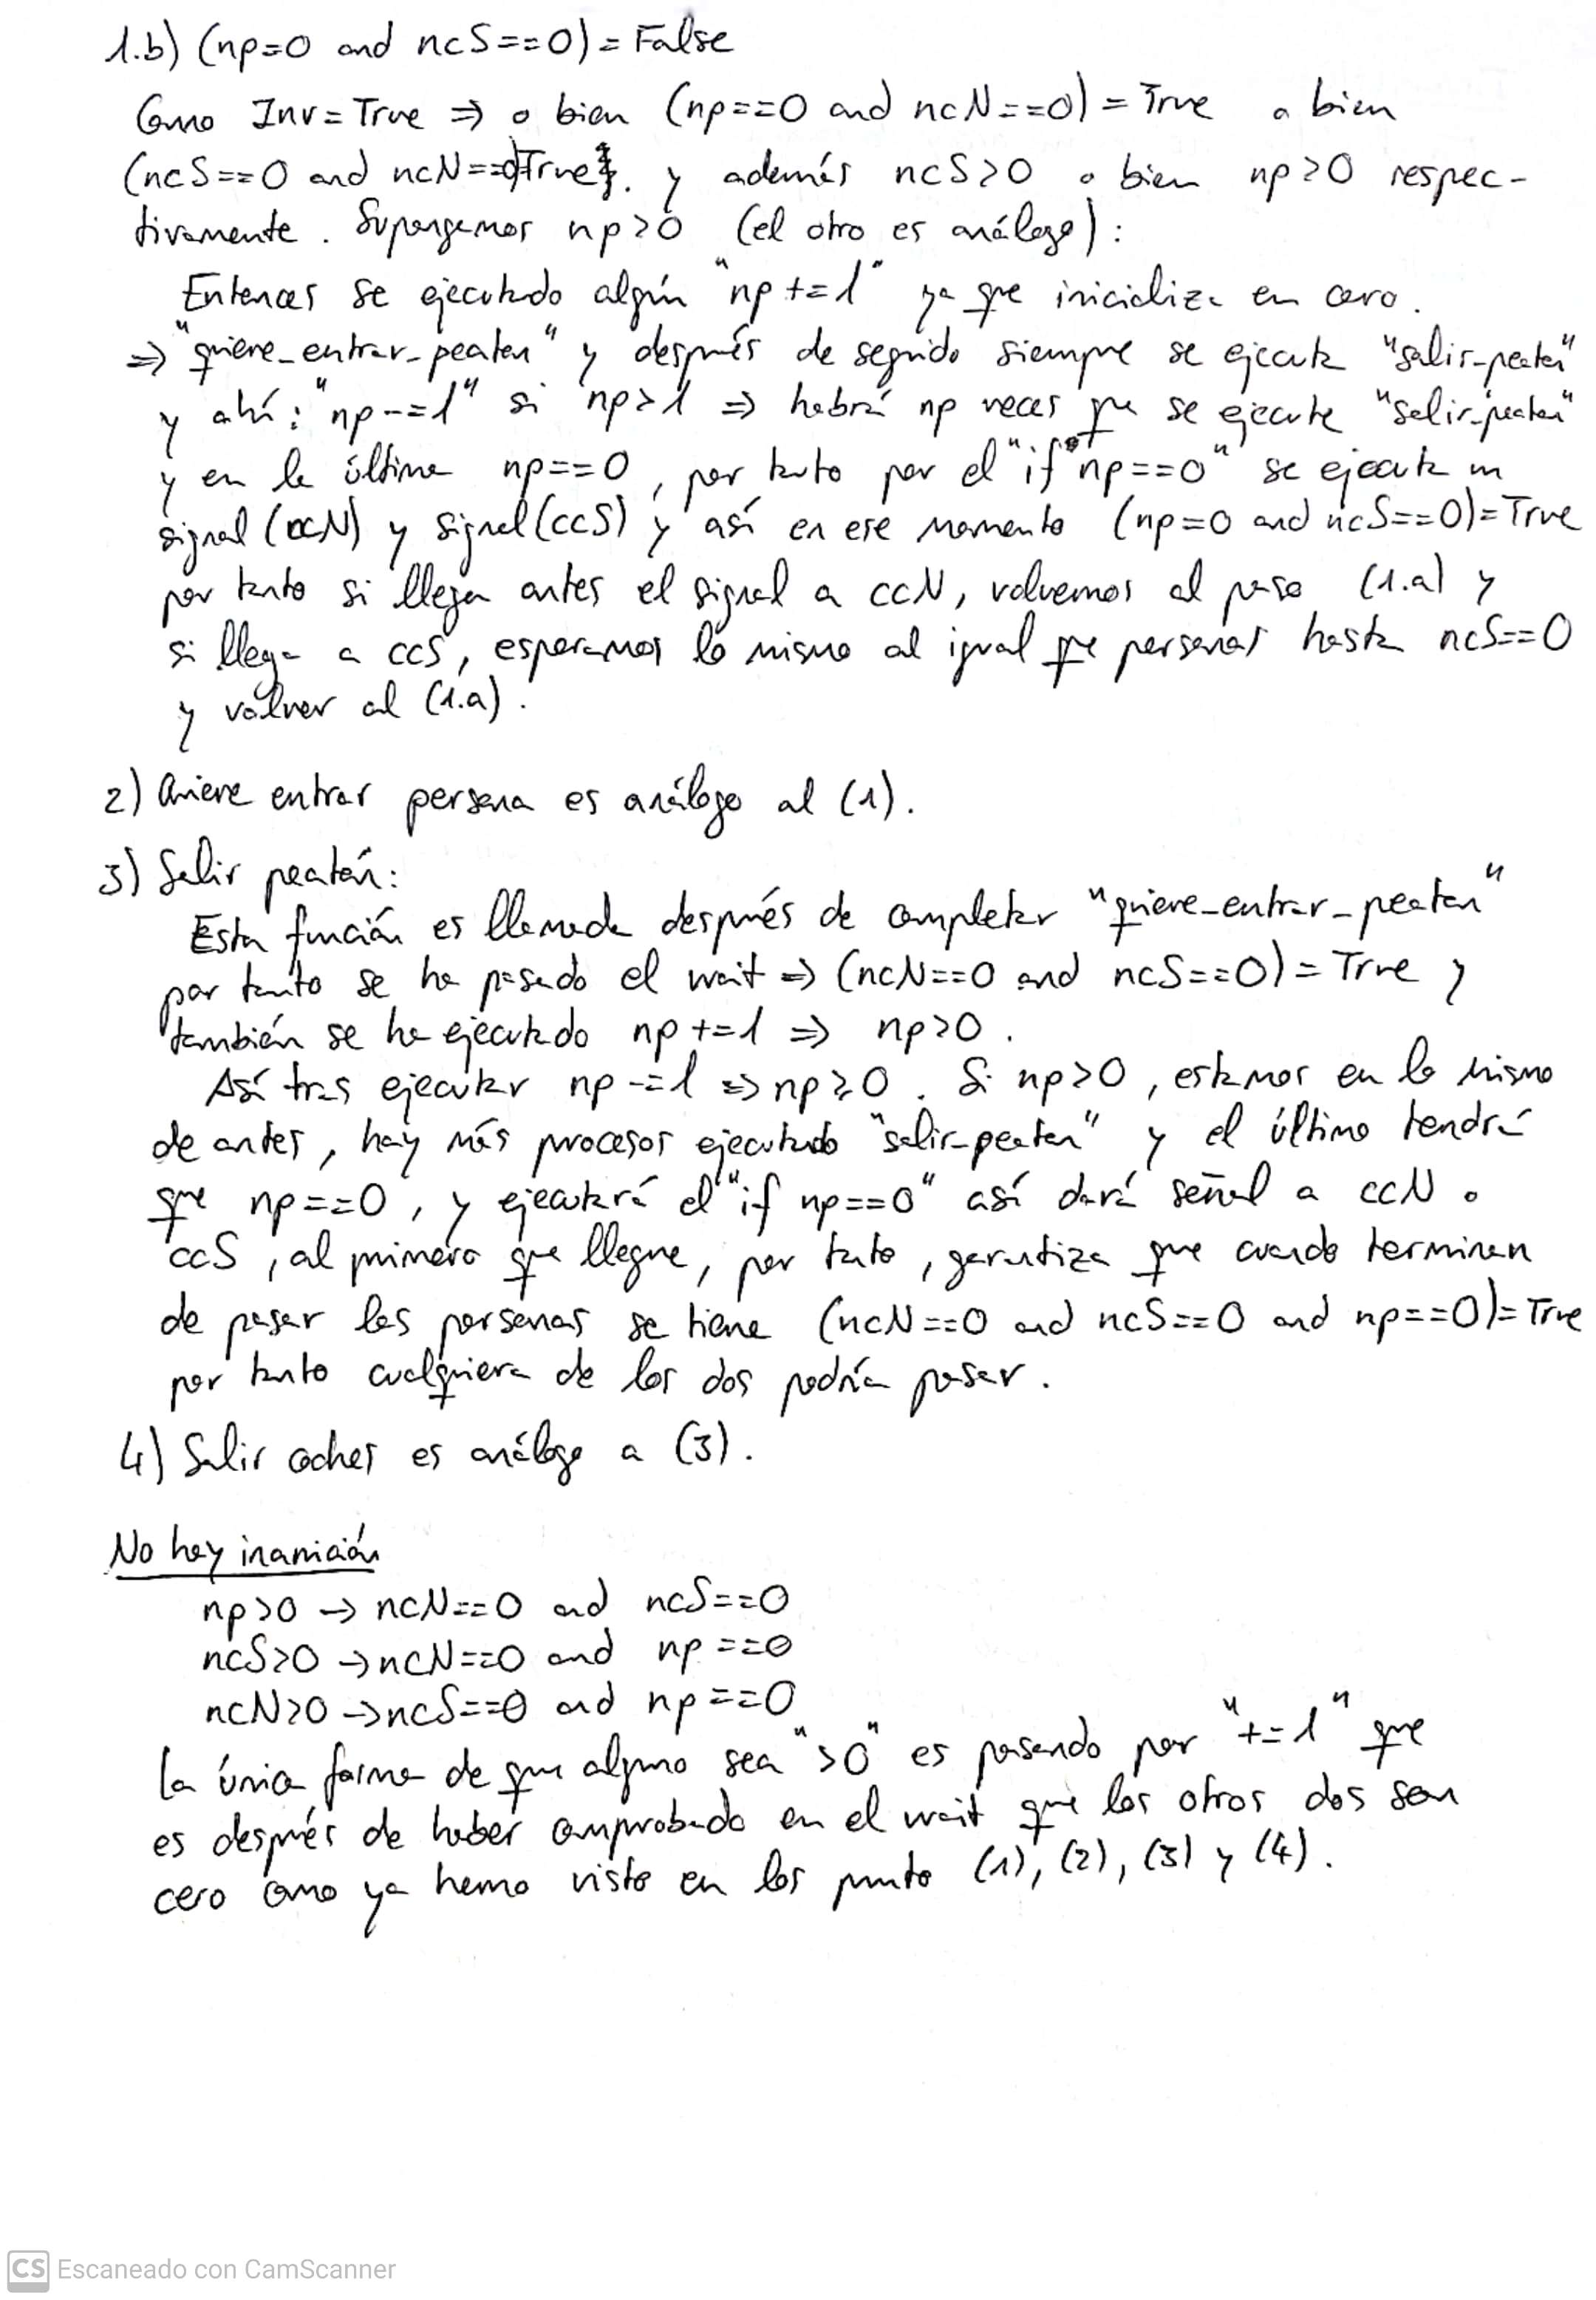 1.b) (np=0 and ncS==0) = False
Como Inv=True ⇒ o bien (np==0 and ncN==0) = True o bien
(ncS==0 and ncN==0)True}. y además ncS>0 o bien np>0 respec-
tivamente. Supongamos np>0 (el otro es análogo):
Entonces se ejecutado algún "np+=1" ya que inicializa en cero.
⇒ "quiere_entrar_peaton" y después de seguido siempre se ejecuta "salir_peaton"
y ahí: "np-=1" si np>1 ⇒ habrá np veces que se ejecute "salir_peaton"
y en la última np==0, por tanto por el "if np==0" se ejecuta un
signal (ccN) y signal (ccS) y así en ese momento (np=0 and ncS==0)=True
por tanto si llega antes el signal a ccN, volvemos al paso (1.a) y
si llega a ccS, esperamos lo mismo al igual que personas hasta ncS==0
y volver al (1.a).
2) Quiere entrar persona es análogo al (1).
3) Salir peatón:
Esta función es llamada después de completar "quiere_entrar_peaton"
por tanto se ha pasado el wait ⇒ (ncN==0 and ncS==0) = True y
también se ha ejecutado np+=1 ⇒ np>0.
Así tras ejecutar np-=1 ⇒ np≥0. Si np>0, estamos en lo mismo
de antes, hay más procesos ejecutando "salir_peaton" y el último tendrá
que np==0, y ejecutará el "if np==0" así dará señal a ccN o
ccS, al primero que llegue, por tanto, garantiza que cuando terminen
de pasar las personas se tiene (ncN==0 and ncS==0 and np==0)=True
por tanto cualquiera de los dos podría pasar.
4) Salir coches es análogo a (3).
No hay inanición
np>0 → ncN==0 and ncS==0
ncS>0 → ncN==0 and np==0
ncN>0 → ncS==0 and np==0
la única forma de que alguno sea ">0" es pasando por "+=1" que
es después de haber comprobado en el wait que los otros dos son
cero como ya hemo visto en los punto (1), (2), (3) y (4).
CS Escaneado con CamScanner